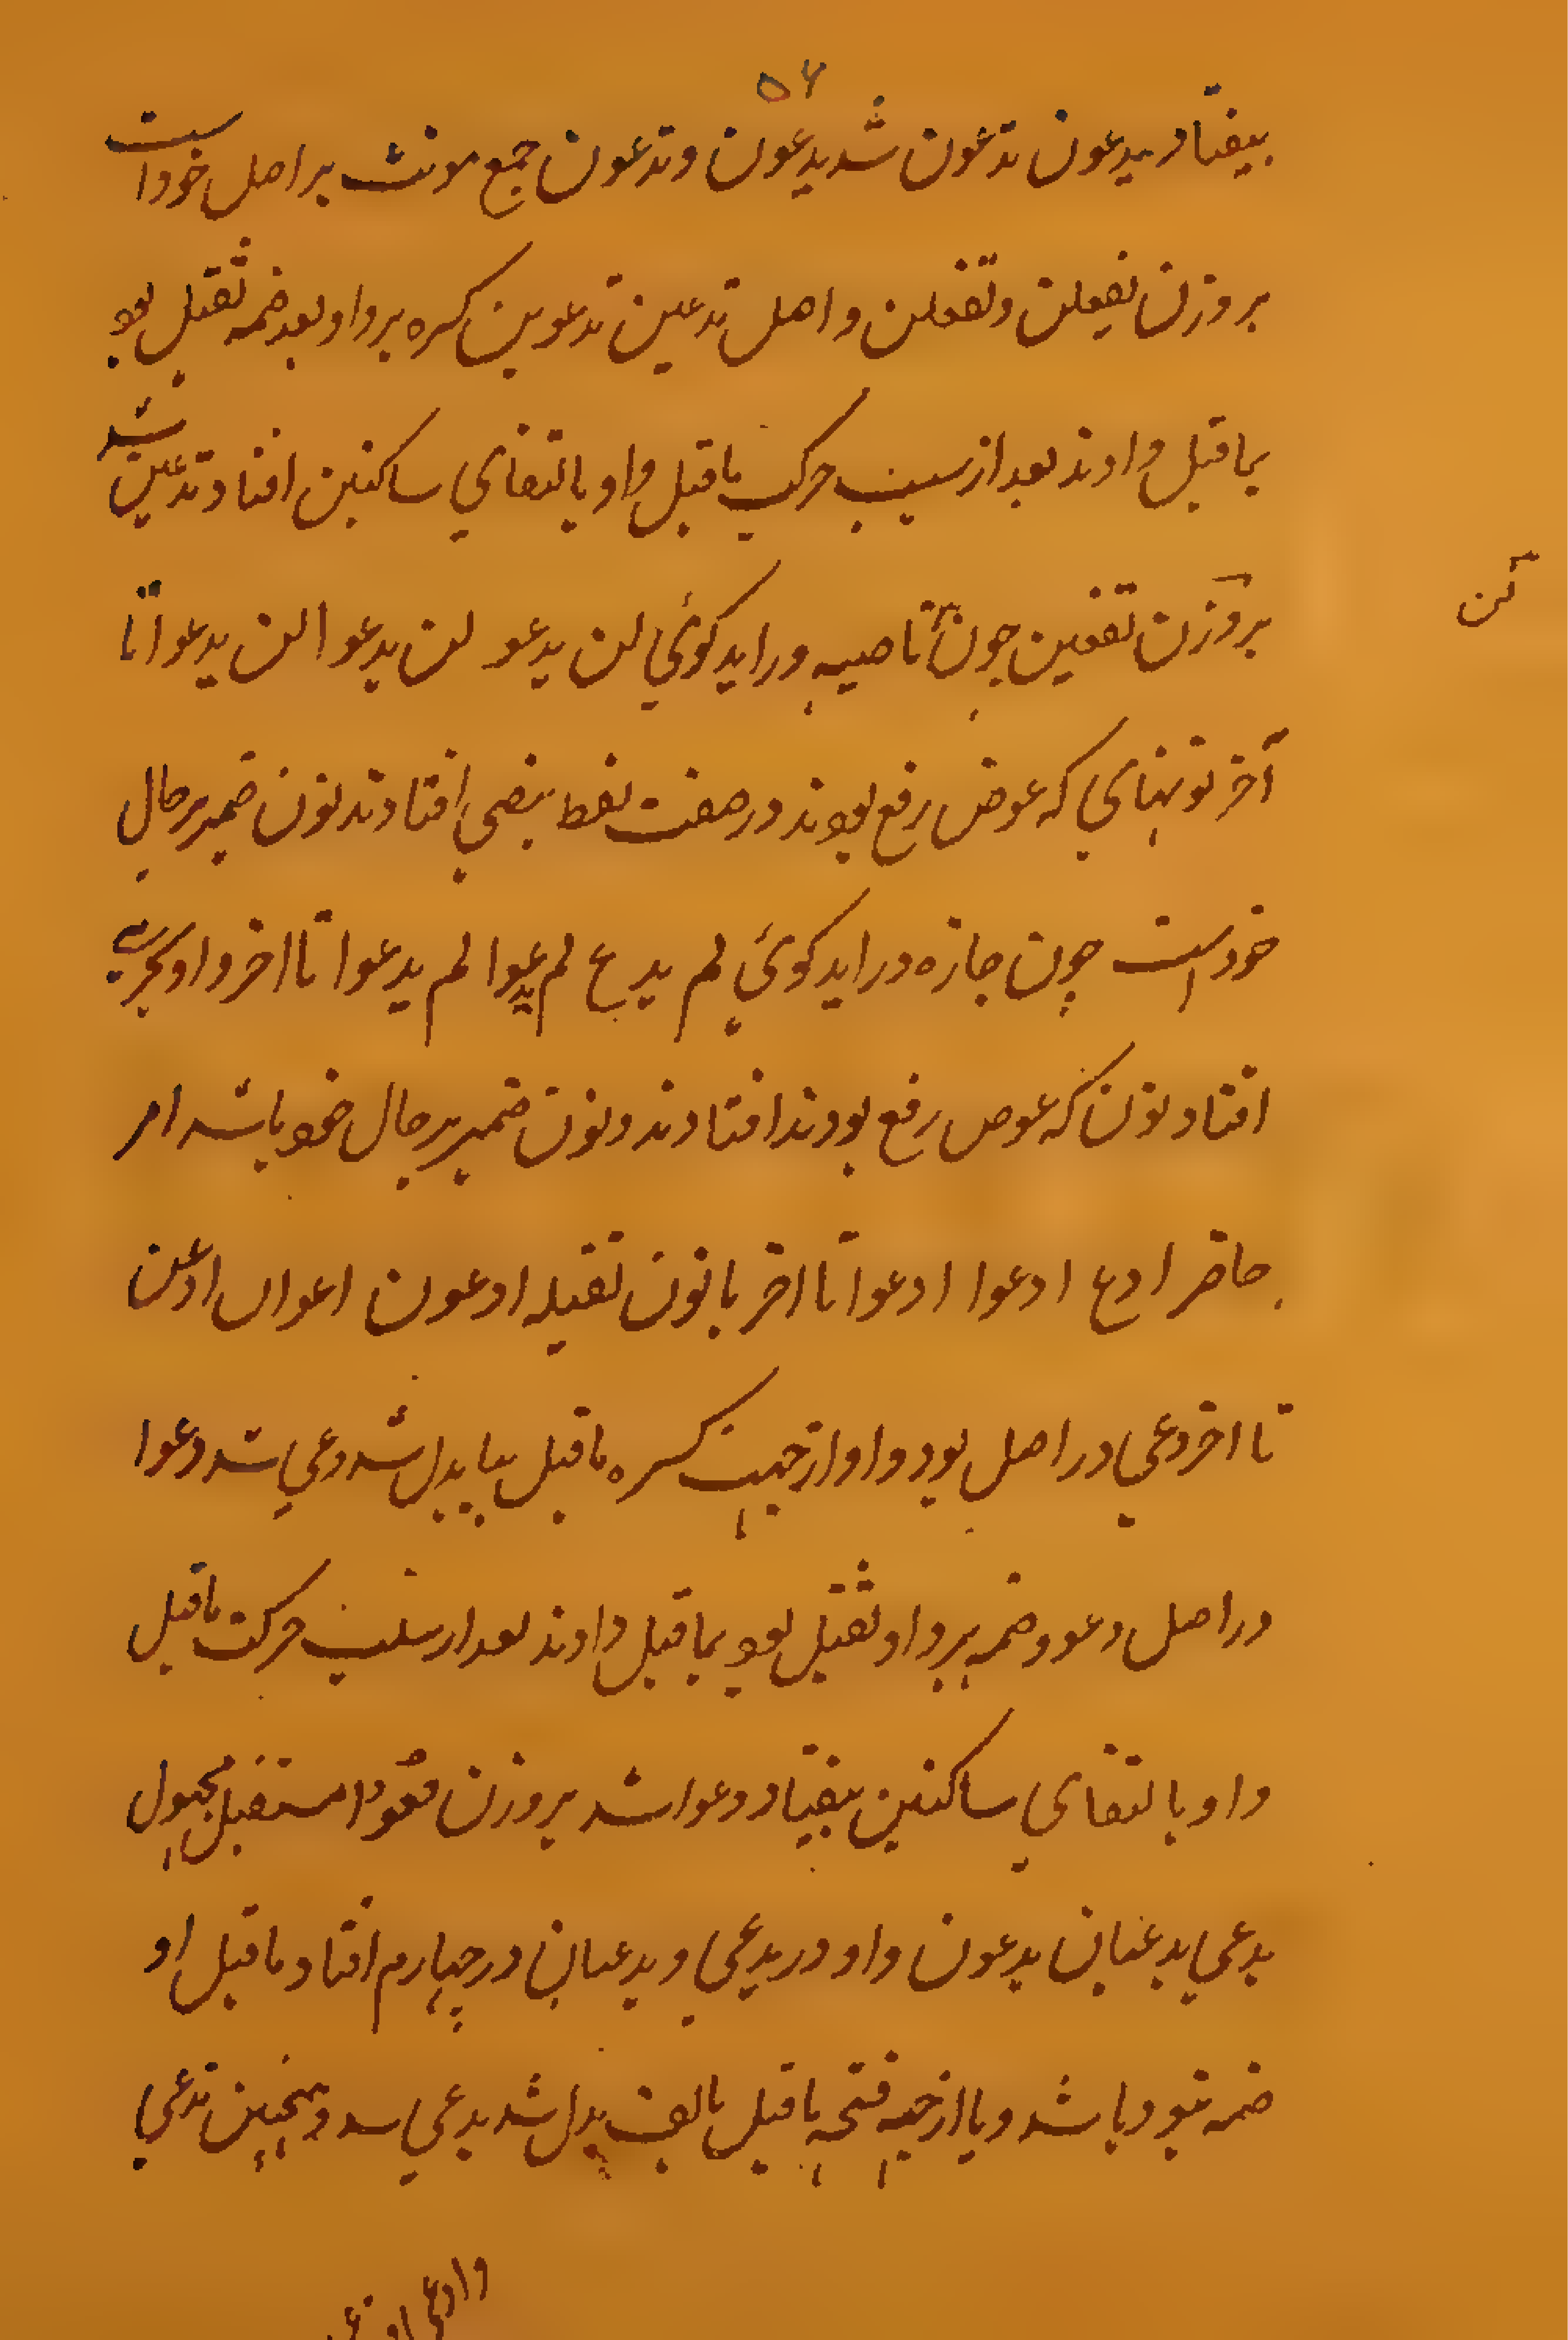 ۵۶
بیفتاد یدعون تدعون شد یدعون و تدعون جمع مونث بر اصل خود است
بر وزن یفعلن و تفعلن و اصل تدعین تدعوین کسره بر واو بعد ضمه ثقیل بود
بماقبل دادند بعد از سلب حرکت ماقبل واو بالتقای ساکنین افتاد تدعین شد
بر وزن تفعین چون ناصبه دراید کوئی لن یدعو لن یدعوا لن یدعوا تا
لن
آخر نونهای که عوض رفع بودند در صفت لفظ بنصبی افتادند نون ضمیر بر حال
خود است چون جازه دراید کوئی لم یدع لم یدعوا لم یدعوا تا اخر واو بجزمی
افتاد نون که عوض رفع بودند افتادند و نون ضمیر بر حال خود باشد امر
حاضر ادع ادعوا ادعوا تا اخر با نون ثقیله ادعون اعوان ادعن
تا اخر دعی در اصل بود واو از جهت کسره ماقبل بیا بدل شد دعی شد دعوا
در اصل دعوو ضمه بر واو ثقیل بود بماقبل دادند بعد از سلب حرکت ماقبل
واو بالتقای ساکنین بیفتاد دعوا شد بر وزن فعوا مستقبل مجهول
یدعی یدعیان یدعون واو در یدعی و یدعیان در چهارم افتاد ماقبل او
ضمه نبود یا شد و یا از جهه فتحه ماقبل بالف بدل شد یدعی شد و همچنین تدعی
وادعی